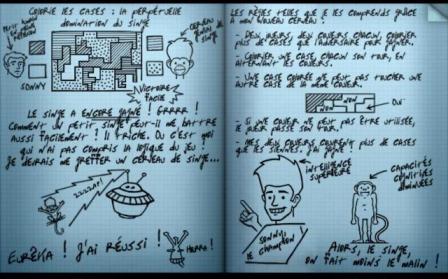 COLORIE LES CASES : LA PERPÉTUELLE
DOMINATION DU SINGE
PETIT
HUMAIN
CERVEAU
DE
SINGE
SONNY
VICTOIRE
FACILE
LE SINGE A ENCORE GAGNÉ ! GRRRR !
COMMENT UN PETIT SINGE PEUT-IL ME BATTRE
AUSSI FACILEMENT ? IL TRICHE. OU C'EST MOI
QUI N'AI PAS COMPRIS LA LOGIQUE DU JEU !
JE DEVRAIS ME GREFFER UN CERVEAU DE SINGE...
ZZZZAP!
EURÊKA ! J'AI RÉUSSI !
HEHEHE!
LES RÈGLES TELLES QUE JE LES COMPRENDS GRÂCE
À MON NOUVEAU CERVEAU :
- DEUX JOUEURS, DEUX COULEURS CHACUN, COLORIER
PLUS DE CASES QUE L'ADVERSAIRE POUR GAGNER.
- COLORIER UNE CASE, CHACUN SON TOUR, EN
ALTERNANT LES COULEURS.
- UNE CASE COLORÉE NE PEUT PAS TOUCHER UNE
AUTRE CASE DE LA MÊME COULEUR.
NON
OUI
- SI UNE COULEUR NE PEUT PAS ÊTRE UTILISÉE,
LE JOUEUR PASSE SON TOUR.
- MES DEUX COULEURS COUVRENT PLUS DE CASES
QUE LES SIENNES. J'AI GAGNÉ !
INTELLIGENCE
SUPÉRIEURE
CAPACITÉS
COGNITIVES
DIMINUÉES
SONNY,
LE CHAMPION
ALORS, LE SINGE,
ON FAIT MOINS LE MALIN !